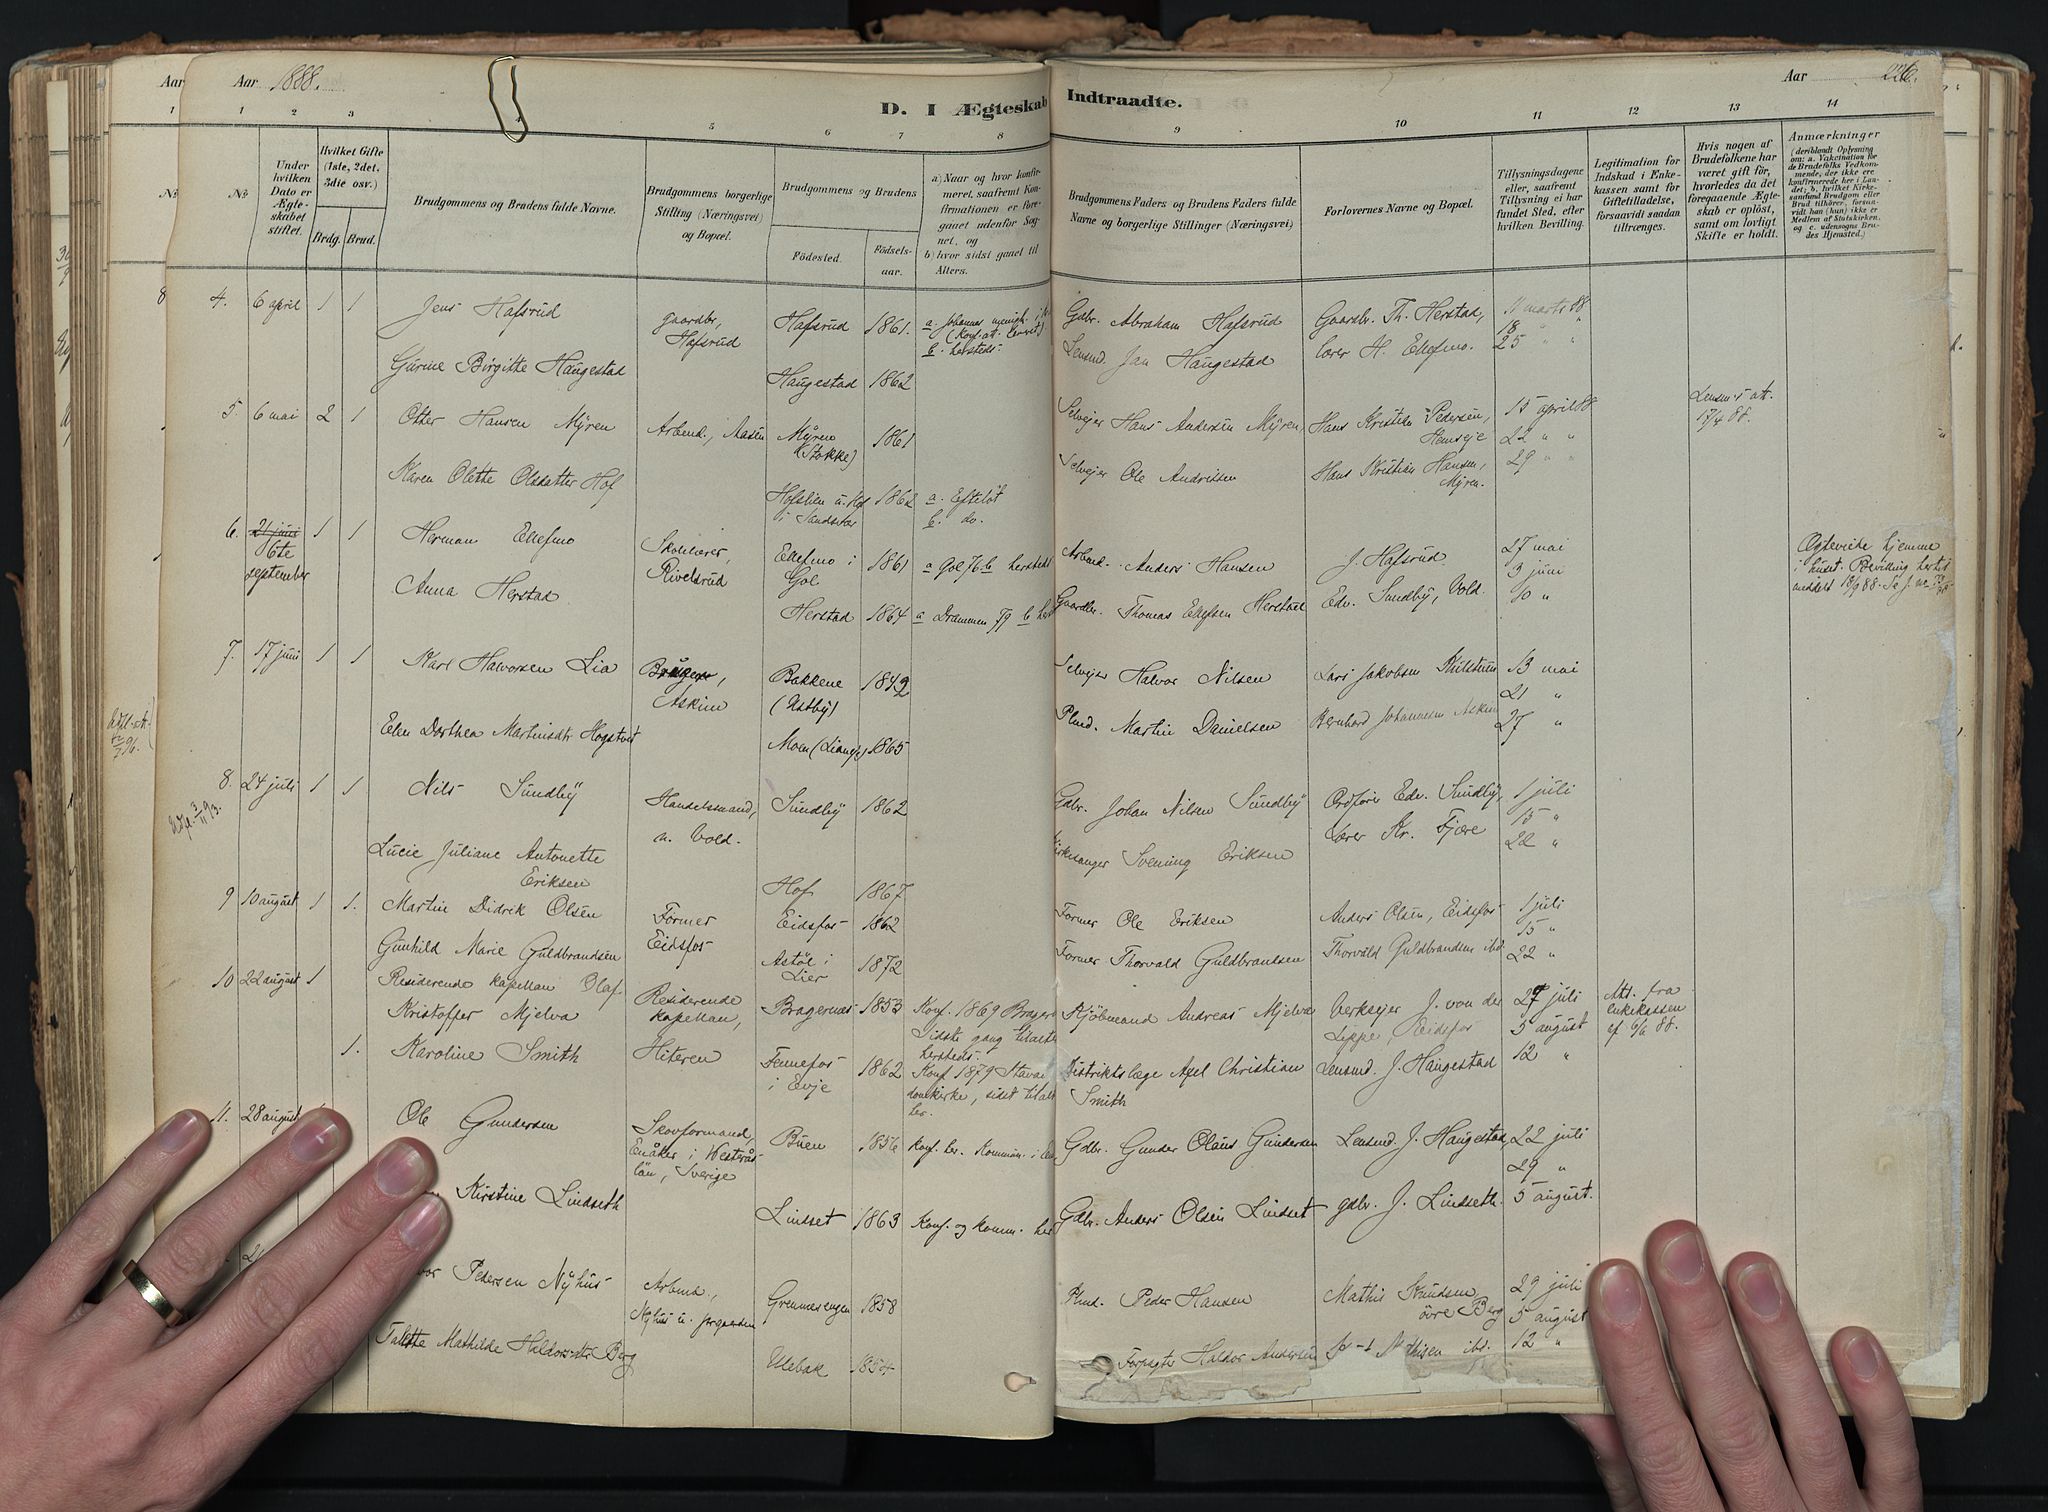 Aar
Aar 1888.
D. I Ægteskab Indtraadte.
Aar 226.
1 2 3 4 5 6 7 8 9 10 11 12 13 14
No.
No.
Under hvilken Dato er Ægteskabet stiftet.
Hvilket Gifte (1ste, 2det, 3die osv.)
Brdg. Brud.
Brudgommens og Brudens fulde Navne.
Brudgommens borgerlige Stilling (Næringsvei) og Bopæl.
Brudgommens og Brudens
Fødested.
Fødselsaar.
a) Naar og hvor konfirmeret, saafremt Konfirmationen er foregaaet udenfor Sognet, og
b) hvor sidst gaaet til Alters.
Brudgommens Faders og Brudens Faders fulde Navne og borgerlige Stillinger (Næringsvei)
Forlovernes Navne og Bopæl.
Tillysningsdagene eller, saafremt Tillysning ei har fundet Sted, efter hvilken Bevilling.
Legitimation for Indskud i Enkekassen samt for Giftetilladelse, forsaavidt saadan tiltrænges.
Hvis nogen af Brudefolkene har været gift før, hvorledes da det foregaaende Ægteskab er opløst, samt om lovligt Skifte er holdt.
Anmærkninger
(deriblandt Oplysning om: a. Vakcination for de Brudefolks Vedkommende, der ikke ere konfirmerede her i Landet; b. hvilket Kirkesamfund Brudgom eller Brud tilhører, forsaavidt han (hun) ikke er Medlem af Statskirken, og c. udensogns Brudes Hjemsted.)
4. 6 april 1 1 Jens Hafsrud gaardbr., Hafsrud Hafsrud 1861. Gdbr. Abraham Hafsrud Gaardbr. Th. Herstad, 11 marts 88
b. hersteds.
18 " "
Gurine Birgitte Haugestad Haugestad 1862 Lensmd. Jan Haugestad lærer H. Ellefmo. 25 " "
5. 6 mai 2 1 Otter Hansen Myren Arbeid., Aasen Myren (Stokke) 1861 Selvejer Hans Andersen Myren, Hans Kristian Pedersen, Hemseje 15 april 88
22 " "
Lensm's att. 17/4 88.
Karen Olette Olsdatter Hof Hofslien u. Hof i Sandsvær 1862 a. Efteløt b. do. Selvejer Ole Andersen Hans Kristian Hansen, Myren. 29 " "
6. 21 juni 6te september 1 1 Herman Ellefmo Skolelærer, Rivelsrud Ellefmo i Gol 1861 a Gol 76 b hersteds Arbmd. Anders Hansen J. Hafsrud 27 mai
3 juni
Ægteviede hjemme i huset. Bevilling hertil meddelt 18/9 88.
Anna Herstad Herstad 1864 a Drammen 79 b Gaardbr. Thomas Ellefsen Herstad Edv. Sundby, Vold. 10 "
7. 17 juni 1 1 Karl Halvorsen Lia Askim Bakkene (Østby) 1842 Selvejer Halvor Nilsen Lars Jakobsen 13 mai
21 "
Elen Dorthea Martinsdtr Hogstvet Moen (Lianeje) 1865 Plmd. Martin Danielsen Bernhard Johannesen Askim 27 "
8. 24 juli 1 1 Nils Sundby Handelsmand, n. Vold. Sundby 1862 Gdbr. Johan Nilsen Sundby Ordfører Edv. Sundby, 1 juli
15 "
Udfl. 3/11 93.
Lucie Juliane Antonette Eriksen Hof 1867 Kirkesanger Svening Eriksen Lærer Kr. Fjære 22 "
9 10 august 1 1. Martin Didrik Olsen Former Eidsfos Eidsfos 1862 Former Ole Eriksen Anders Olsen, Eidsfos 1 juli
15 "
Gunhild Marie Guldbrandsen Astøl i Lier 1872 Former Thorvald Guldbrandsen Thorvald Guldbrandsen ibd. 22 "
10 22 august 1 Residerende kapellan Olaf Kristoffer Mjelva Residerende kapellan, Hiteren Bragernes 1853 Konf. 1869 Bragernes Sidste gang tilalters hersteds. Kjøbmand Andreas Mjelva Verkseier J. von der Lippe, Eidsfos 29 juli
5 august
Att. fra enkekassen ef 6/6 88.
1. Karoline Smith Fennefos i Evje 1862 Konf 1879 domkirke, sidst tilalters her. Distriktslæge Axel Christian Smith Lensmd. J. Haugestad 12 "
11. 28 august Ole Gundersen Skovformand, Enåker i Westerås län, Sverige Buen 1856 Konf. her. Kommun. i Gdbr. Gunder Olaus Gundersen Lensmd. J. Haugestad, 22 juli
29 "
Kirstine Lindseth Lindset 1863 Konf. og komm. her Gdbr. Anders Olsen Lindset gdbr. J. Lindseth. 5 august.
Pedersen Nyhus Arbmd., Nyhus u. Grennesengen 1858 Plmd. Peder Hansen Mathis Knudsen, øvre Berg 29 juli
5 august
Mathilde Haldorsdtr. Berg Ulebak 1854 Forpagter Haldor Andersen ibd. 12 "